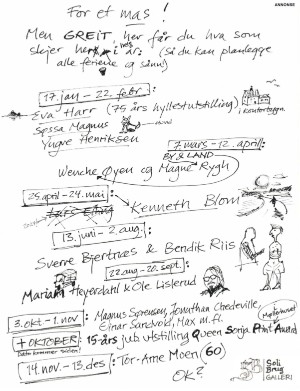 ANNONSE
For et mas!
Men GREIT her får du hva som
skjer i hele år: (Så du kan planlegge
alle feriene og sånn)
17. jan – 22. febr.
Eva Harr (75 års hyllestutstilling)
Søssa Magnus
Yngve Henriksen
7 mars – 12. april:
BY & LAND
Wenche Øyen og Magne Rygh
25. april – 24. mai:
Kenneth Blom
13. juni – 2. aug:
Sverre Bjertnæs & Bendik Riis
22. aug – 20. sept.:
Mariann Heyerdahl & Ole Lislerud
3. okt – 1. nov:
Magnus Sørensen, Jonathan Chedeville,
Einar Sandvold, Max m.fl.
+ OKTOBER:
15-års jub. utstilling Queen Sonja Print Award
14. nov – 13. des:
Tor-Arne Moen (60)
OK?
Soli
Brug
GALLERI